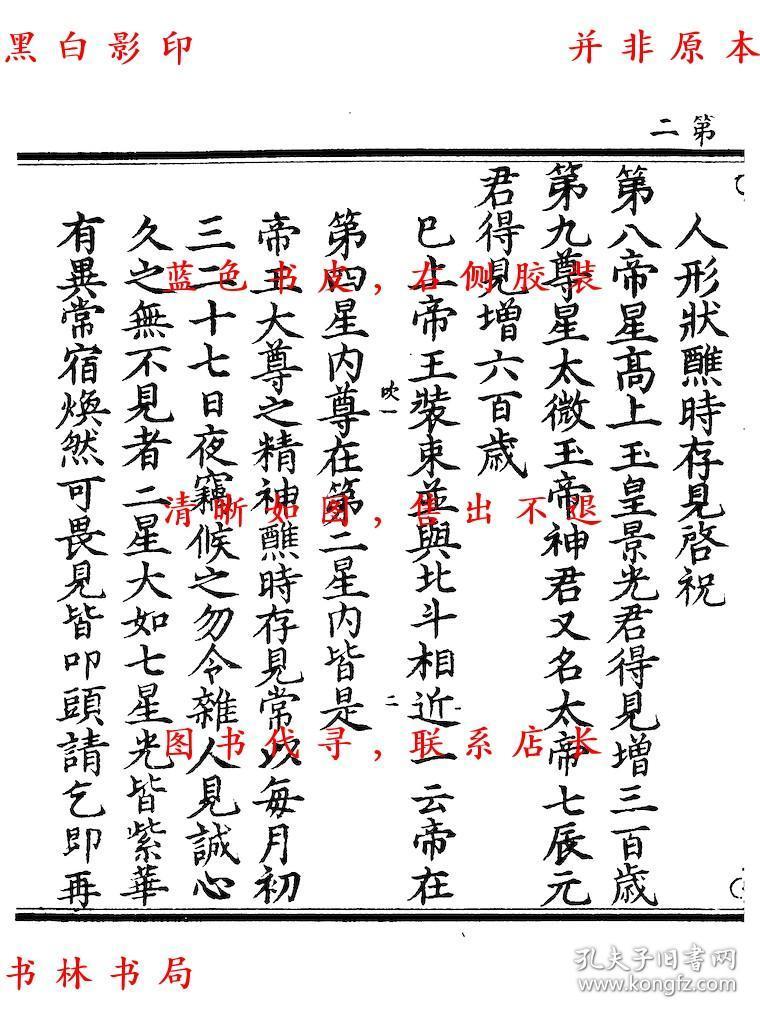 黑白影印
并非原本
第二
人形狀醮時存見啓祝
第八帝星高上玉皇景光君得見增三百歲
第九尊星太微玉帝神君又名太帝七辰元
君得見增六百歲
巳上帝王裝束並與北斗相近一云帝在
吹一
二
第四星内尊在第二星内皆是
帝王大尊之精神醮時存見常以每月初
三二十七日夜竊候之勿令雜人見誠心
久之無不見者二星大如七星光皆紫華
有異常宿煥然可畏見皆叩頭請乞即再
蓝色书皮,右侧胶装
清晰如图,售出不退
图书代寻,联系店长
书林书局
孔夫子旧书网
www.kongfz.com